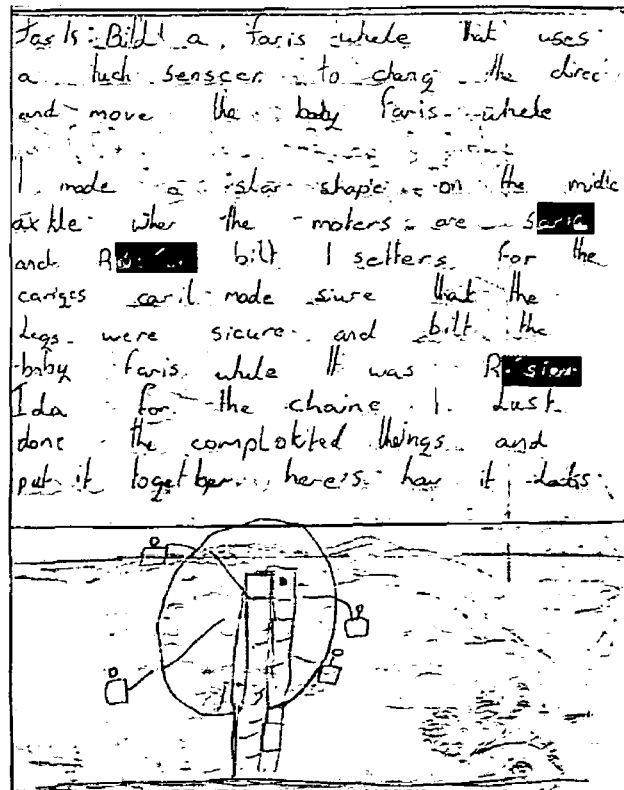 Task: Bild a faris whele that uses
a tuch senscer to chang the direc
and move the baby faris whele
I made a star shape on the midle
axkle wher the moters are
and bilt 1 setters for the
cariges made siure that the
Legs were sicure and bilt the
baby faris whele It was
Ida for the chaine I Just
done the complokited theings and
put it together here's how it Looks